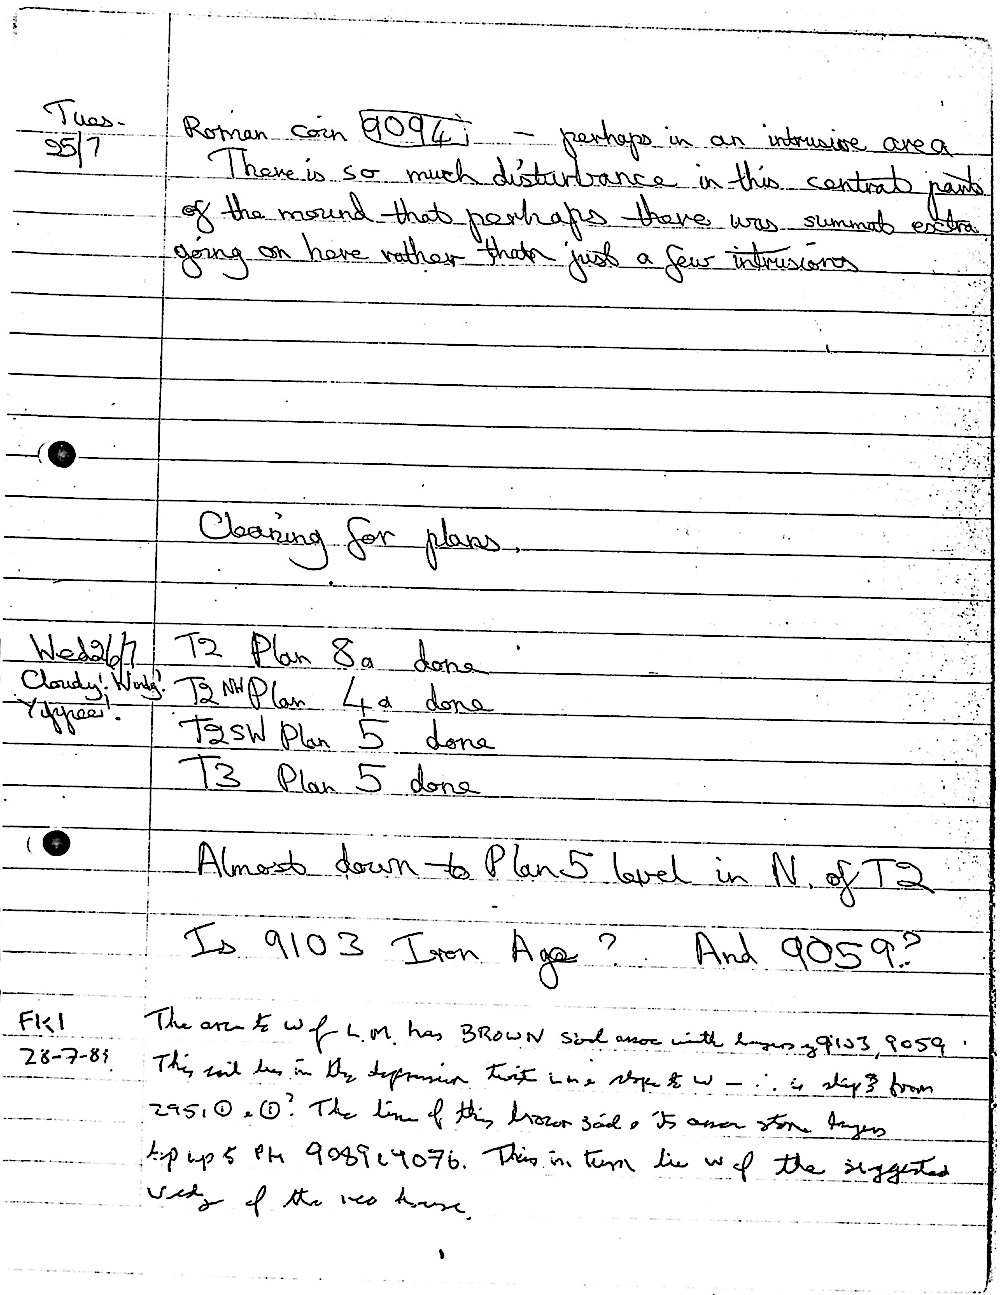 Tues.
25/7
Roman coin 9094 – perhaps in an intrusive area
There is so much disturbance in this central parts
of the mound that perhaps there was summat extra
going on here rather than just a few intrusions
Cleaning for plans.
Wed 26/7
Cloudy! Windy!
Yippee!
T2 Plan 8a done
T2 NW Plan 4a done
T2SW Plan 5 done
T3 Plan 5 done
Almost down to Plan 5 level in N. of T2
Is 9103 Iron Age? And 9059?
28-7-89
The area to W of L.M. has BROWN soil assoc with layers 9103, 9059.
This soil lies in the depression slope to W – ∴ is from
The line of this brown soil & its assoc stone layers
up 9089 9076. This in turn lie W of the suggested
of the neo house.